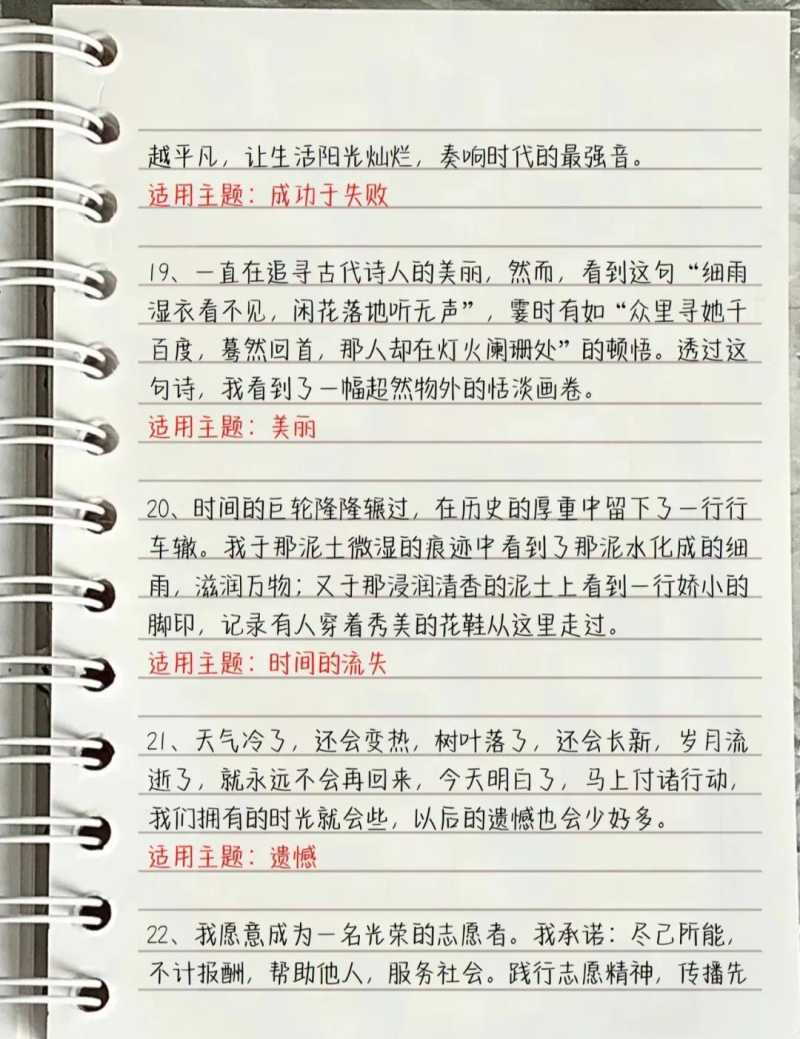 越平凡，让生活阳光灿烂，奏响时代的最强音。
适用主题：成功于失败
19、一直在追寻古代诗人的美丽，然而，看到这句“细雨
湿衣看不见，闲花落地听无声”，霎时有如“众里寻她千
百度，蓦然回首，那人却在灯火阑珊处”的顿悟。透过这
句诗，我看到了一幅超然物外的恬淡画卷。
适用主题：美丽
20、时间的巨轮隆隆辗过，在历史的厚重中留下了一行行
车辙。我于那泥土微湿的痕迹中看到了那泥水化成的细
雨，滋润万物；又于那浸润清香的泥土上看到一行娇小的
脚印，记录有人穿着秀美的花鞋从这里走过。
适用主题：时间的流失
21、天气冷了，还会变热，树叶落了，还会长新，岁月流
逝了，就永远不会再回来，今天明白了，马上付诸行动，
我们拥有的时光就会些，以后的遗憾也会少好多。
适用主题：遗憾
22、我愿意成为一名光荣的志愿者。我承诺：尽己所能，
不计报酬，帮助他人，服务社会。践行志愿精神，传播先